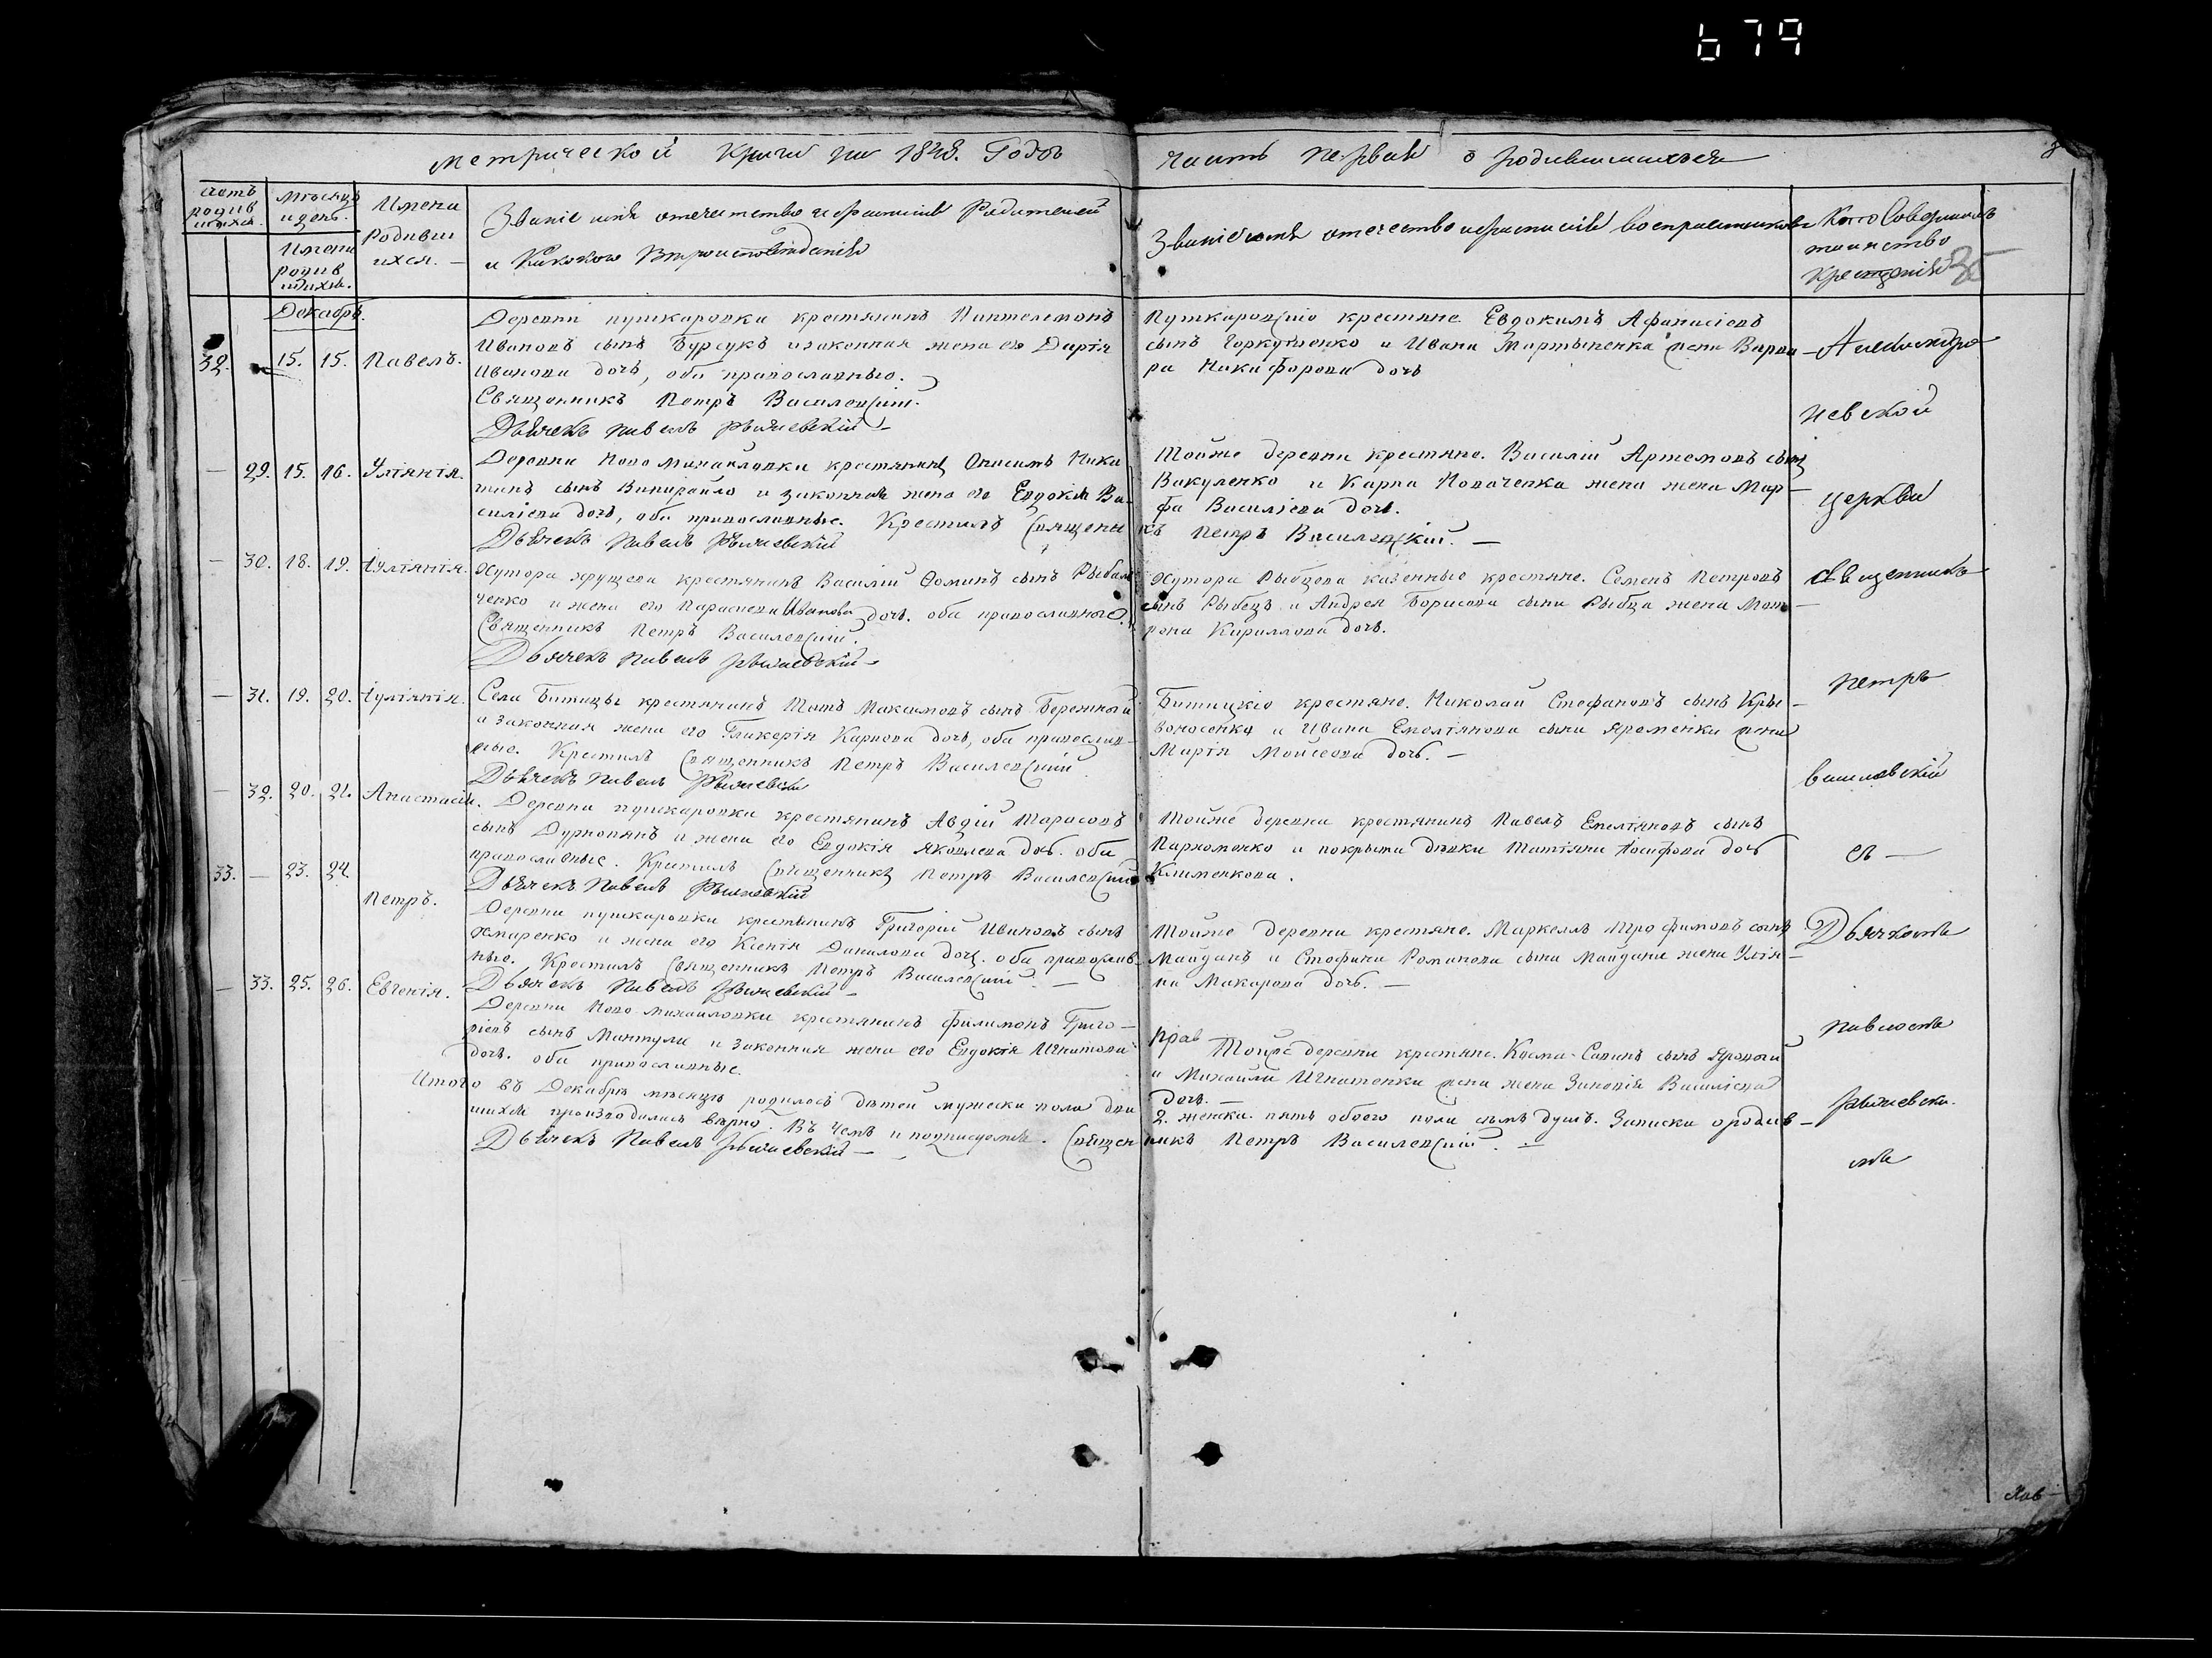 679
Метрической книги на 1848. Годъ
часть первая о родившихся
счетъ родив шихся.
Мѣсяцъ и день.
Имена родив шихся.
Имена Родивш ихся. —
Званіе имя отечество и фамилія Родителей
и Какого Вѣроисповѣданія
Званіе имя отечество и фамилія воспріемниковъ
Кто Совершалъ
таинство
Крещенія
Декабрь.
32. 15. 15. Павелъ.
Деревни пушкаровки крестянинъ Пантелемонъ
Ивановъ сынъ Бурсукъ изаконная жена его Дарія
Иванова дочь, оба православные.
Священникъ Петръ Василевскій.
Дьячекъ Павелъ
Пушкаровскіе крестяне. Евдокимъ Афанасіевъ
сынъ и Ивана Мартыненка жена Варва
ра Никифорова дочь
— 29. 15. 16. Уліянія.
Деревни Ново Михайловки крестянинъ Онисимъ Ники
тинъ сынъ и законная жена его Евдокія Ва
силіева дочь, оба православные. Крестилъ Священн
икъ Петръ Василевскій. —
Дьячекъ Павелъ
Тойже деревни крестяне. Василій Артемовъ сынъ
Вакуленко и Карпа жена жена Мар—
фа Василіева дочь.
— 30. 18. 19. Іуліянія.
Хутора хрущева крестянинъ Василій Ѳоминъ сынъ Рыбал
ченко и жена его Параскева Иванова дочь. оба православные.
Священникъ Петръ Василевскій.
Дьячекъ Павелъ
Хутора Рыбцова казенные крестяне. Семенъ Петровъ
сынъ Рыбецъ и Андрея Борисова сына Рыбца жена Мат—
рона Кириллова дочь.
— 31. 19. 20. Іуліянія.
Села Битицы крестянинъ Максимовъ сынъ Бережный
и законная жена его Гликерія Карпова дочь, оба православ—
ные. Крестилъ Священникъ Петръ Василевскій.
Дьячекъ Павелъ
Битицкіе крестяне. Николай Стефановъ сынъ Кры—
воносенко и Ивана Емеліянова сына Яременка жена
Марія Моисеова дочь. —
— 32. 20. 21. Анастасія.
Деревни пушкаровки крестянинъ Авдій Тарасовъ
сынъ Дурнопянъ и жена его Евдокія Яковлева дочь. оба
православные. Крестилъ Священникъ Петръ Василевскій
Дьячекъ Павелъ
Тойже деревни крестянинъ Павелъ Емеліяновъ сынъ
Пархоменко и покрыта дѣвка Татіяна Іосифова дочь
Клименкова.
33. — 23. 24. Петръ.
Деревни пушкаровки крестянинъ Григорій Ивановъ сынъ
Хмаренко и жена его Ксенія Данилова дочь. оба православ—
ные. Крестилъ Священникъ Петръ Василевскій. —
Дьячекъ Павелъ
Тойже деревни крестяне. Маркеллъ Трофимовъ сынъ
Майданъ и Стефана Романова сына Майдана жена Улія—
на Макарова дочь. —
— 33. 25. 26. Евгенія.
Деревни Ново Михайловки крестянинъ филимонъ Григо—
ріевъ сынъ Мантула и законная жена его Евдокія Игнатова
дочь. оба православные.
Прав
Тойже деревни крестяне. Косма Савинъ сынъ Яровый
и Михайла Игнатенка жена жена Зиновія Василіева
дочь. —
Итого въ Декабрѣ мѣсяцѣ родилось дѣтей мужеска пола два
2. женска пять обоего пола семь душъ. Записки ородив—
шихся производились вѣрно. Въ чемъ и подписуемся. Священ
никъ Петръ Василевскій. —
Дьячекъ Павелъ
Александро
невской
церкви
священникъ
Петръ
василевскій
съ —
Дьячкомъ
Павломъ